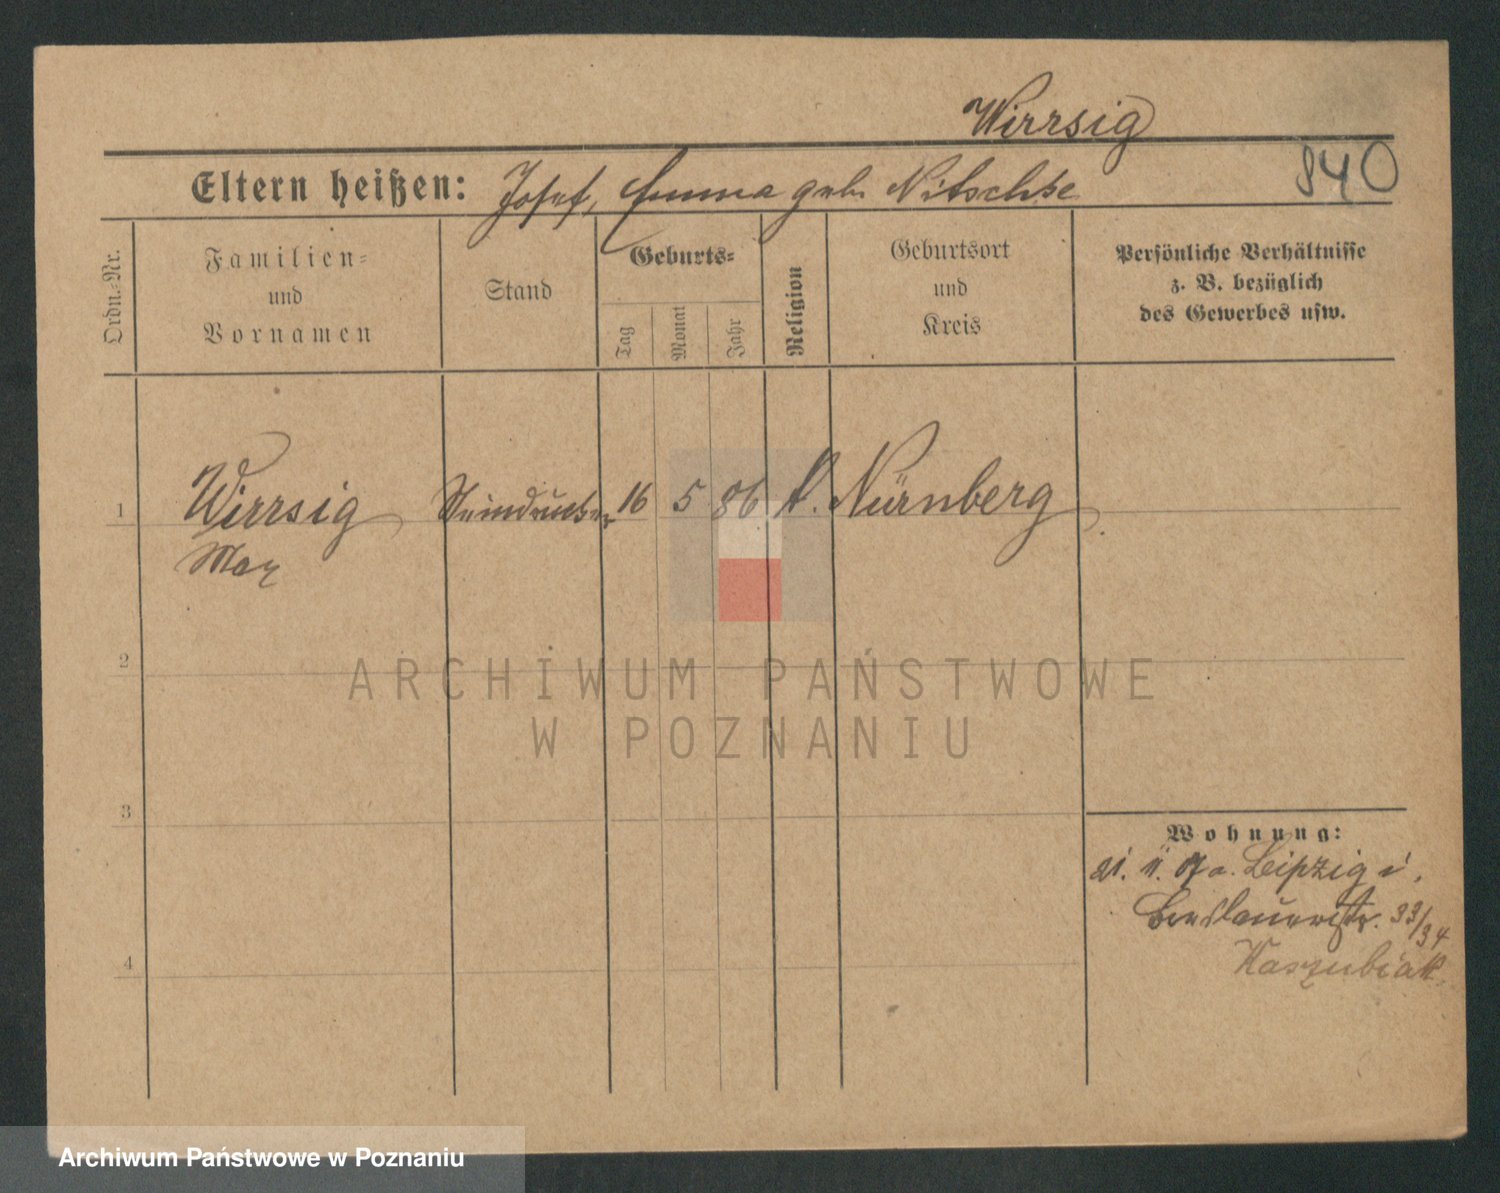 Wirrsig
840
Eltern heißen: Josef, Emma geb. Nitschke
Ordn.-Nr.
Familien-
und
Vornamen
Stand
Geburts-
Tag
Monat
Jahr
Religion
Geburtsort
und
Kreis
Persönliche Verhältnisse
z. B. bezüglich
des Gewerbes usw.
1 Wirrsig Steindrucker 16 5 86 k. Nürnberg
Max
2
ARCHIWUM PAŃSTWOWE
W POZNANIU
3
Wohnung:
Leipzig
Breslauerstr. 33/34
Kaszubiak
4
Archiwum Państwowe w Poznaniu